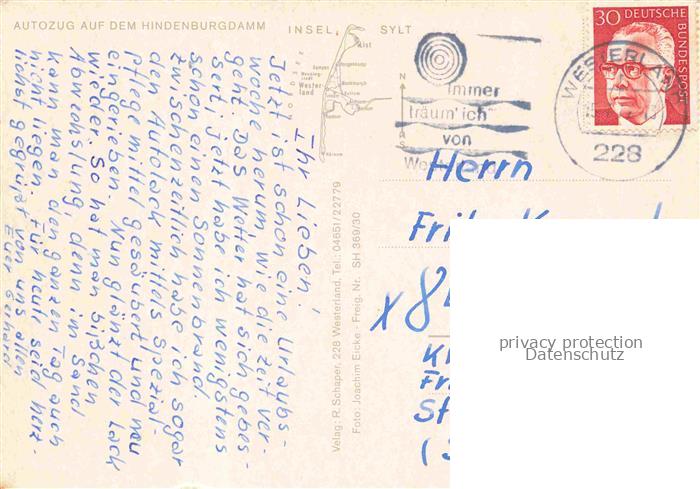 AUTOZUG AUF DEM HINDENBURGDAMM
INSEL SYLT
List
Kampen
Wester-
land
N
S
30 DEUTSCHE
BUNDESPOST
WESTERLAND
228
Immer
träum' ich
von
We
Ihr Lieben!
Jetzt ist schon eine Urlaubs-
woche herum, wie die Zeit ver-
geht. Das Wetter hat sich gebes-
sert, jetzt habe ich wenigstens
schon einen Sonnenbrand.
Zwischenzeitlich habe ich sogar
den Autolack mittels Spezial-
pflegemittel gesäubert und neu
eingerieben. Nun glänzt der Lack
wieder. So hat man bißchen
Abwechslung, denn im Sand
kann man den ganzen Tag auch
nicht liegen. Für heute seid herz-
lichst gegrüßt von uns allen
Euer Gerhard
Verlag: R. Schaper, 228 Westerland, Tel.: 04651/22779
Foto: Joachim Eicke - Freig. Nr. SH 369/30
Herrn
Fri
x 8
K
Fr
St
(S
privacy protection
Datenschutz